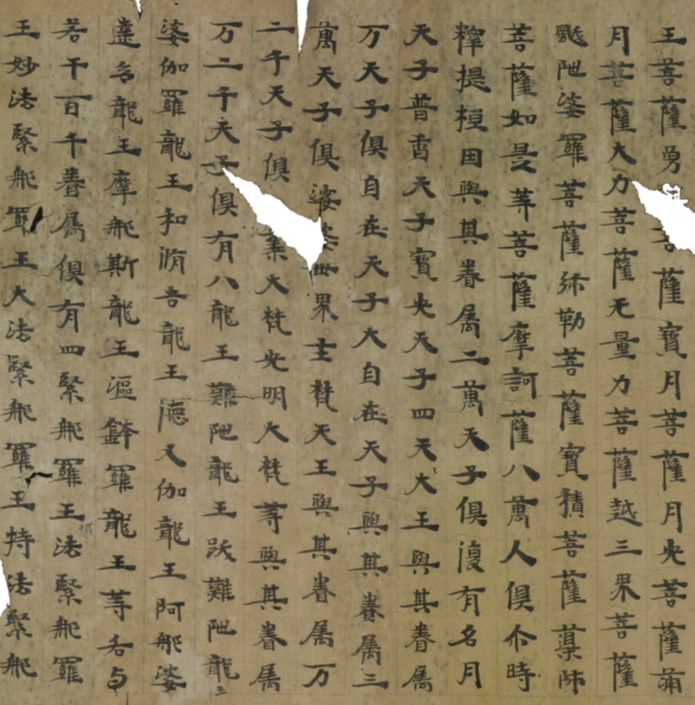 王菩薩勇菩薩寶月菩薩月光菩薩滿
月菩薩大力菩薩无量力菩薩越三界菩薩
颰陁婆羅菩薩弥勒菩薩寶積菩薩導師
菩薩如是等菩薩摩訶薩八萬人俱尒時
釋提桓因與其眷属二萬天子俱復有名月
天子普香天子寳光天子四天大王與其眷属
万天子俱自在天子大自在天子與其眷属三
萬天子俱娑婆世界主梵天王與其眷属万
二千天子俱棄大梵光明大梵等與其眷属
万二千天子俱有八龍王難陁龍王跋難陁龍
娑伽羅龍王和脩吉龍王德叉伽龍王阿那婆
達多龍王摩那斯龍王漚鉢羅龍王等各与
若干百千眷属俱有四緊那羅王法緊那羅
王妙法緊那羅王大法緊那羅王持法緊那